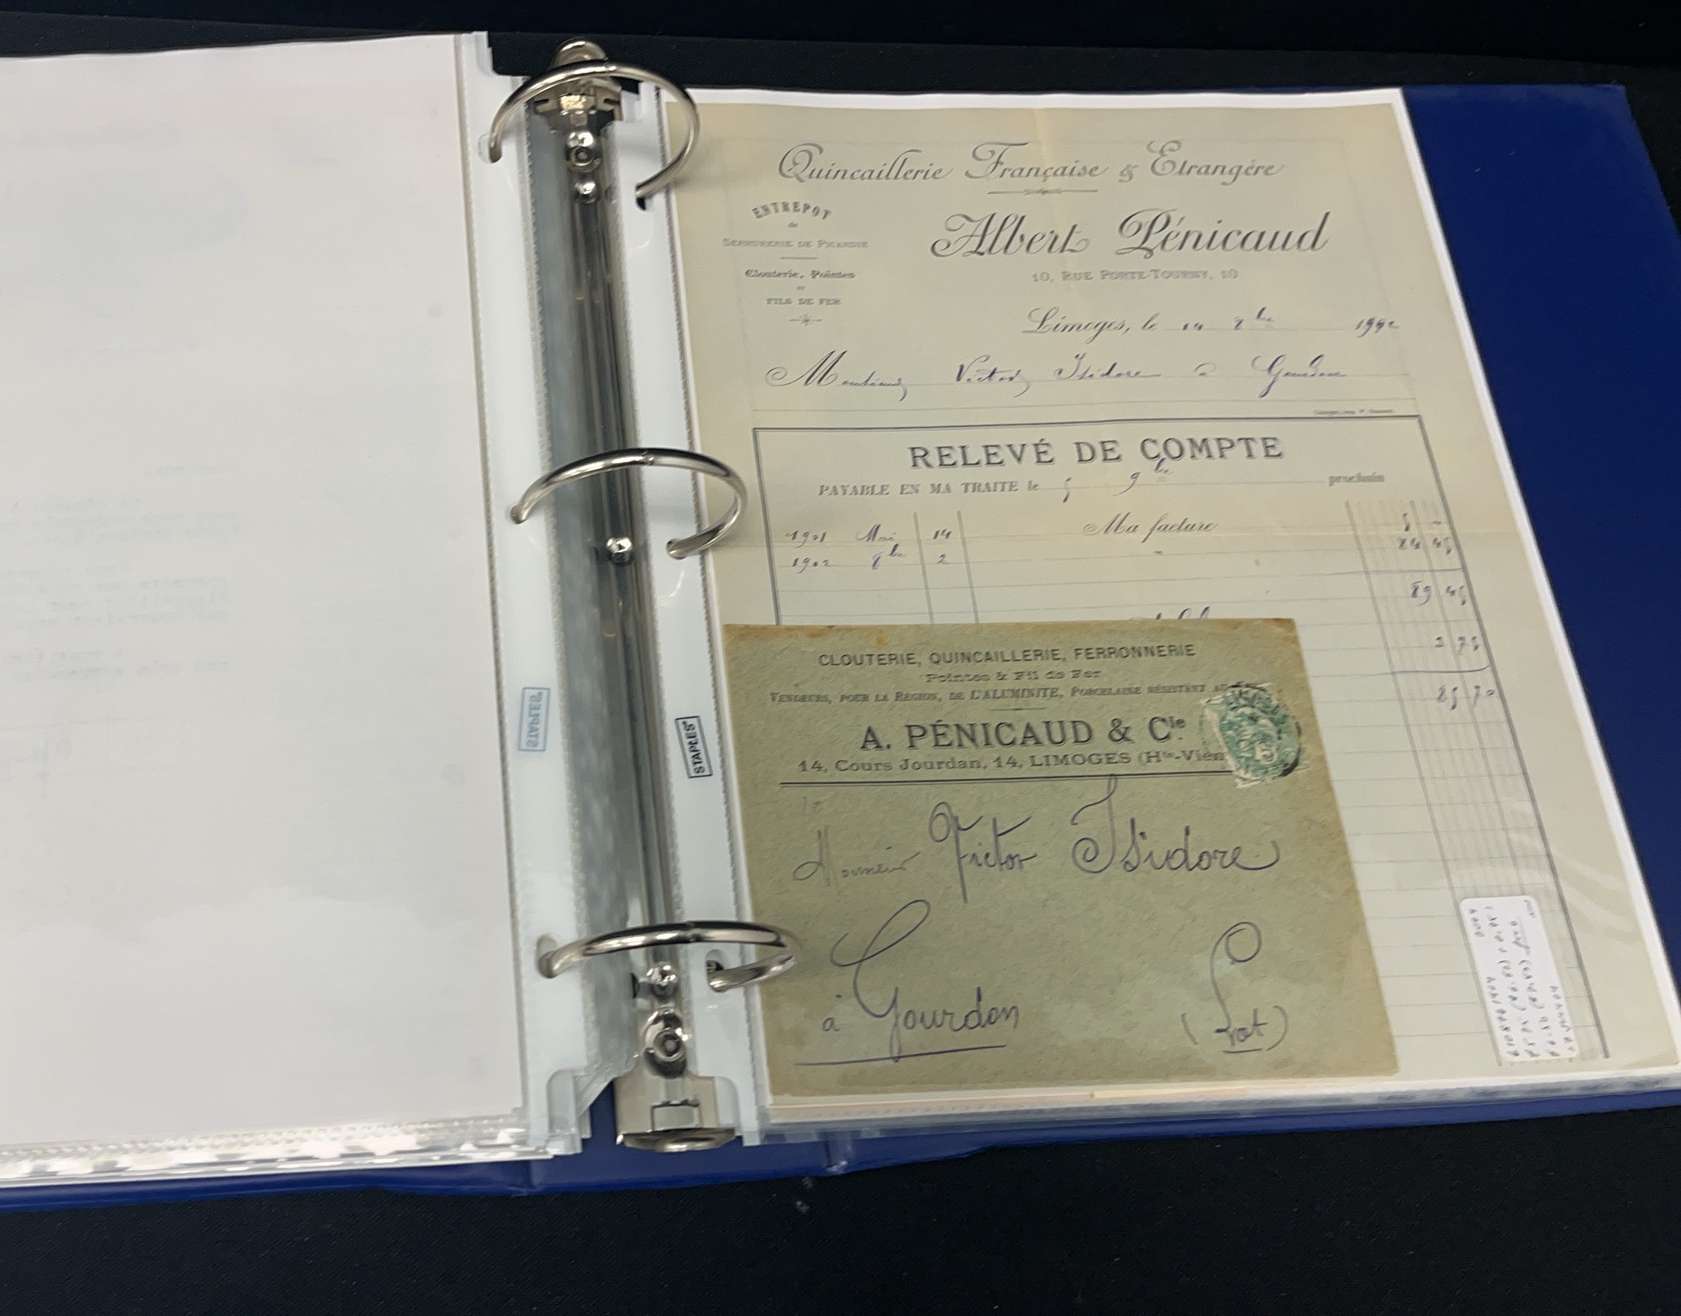 Quincaillerie Française & Etrangère
ENTREPOT
de
SERRURERIE DE PICARDIE
Clouterie, Pointes
et
FILS DE FER
Albert Pénicaud
10, RUE PORTE-TOURNY, 10
Limoges, le 14 8bre
Victor Isidore à Gourdon
RELEVÉ DE COMPTE
PAYABLE EN MA TRAITE le 5 9bre prochain
1901 Mai 14 Ma facture 5 -
1902 8bre 2 " 84 45
89 45
3 75
85 70
CLOUTERIE, QUINCAILLERIE, FERRONNERIE
Pointes & Fil de Fer
VENDEURS, POUR LA RÉGION, DE L'ALUMINITE, PORCELAINE RÉSISTENT AU
A. PÉNICAUD & Cie
14, Cours Jourdan, 14, LIMOGES (Hte-Vien
Monsieur Victor Isidore
à Gourdon
(Lot)
STAPLES
STAPLES